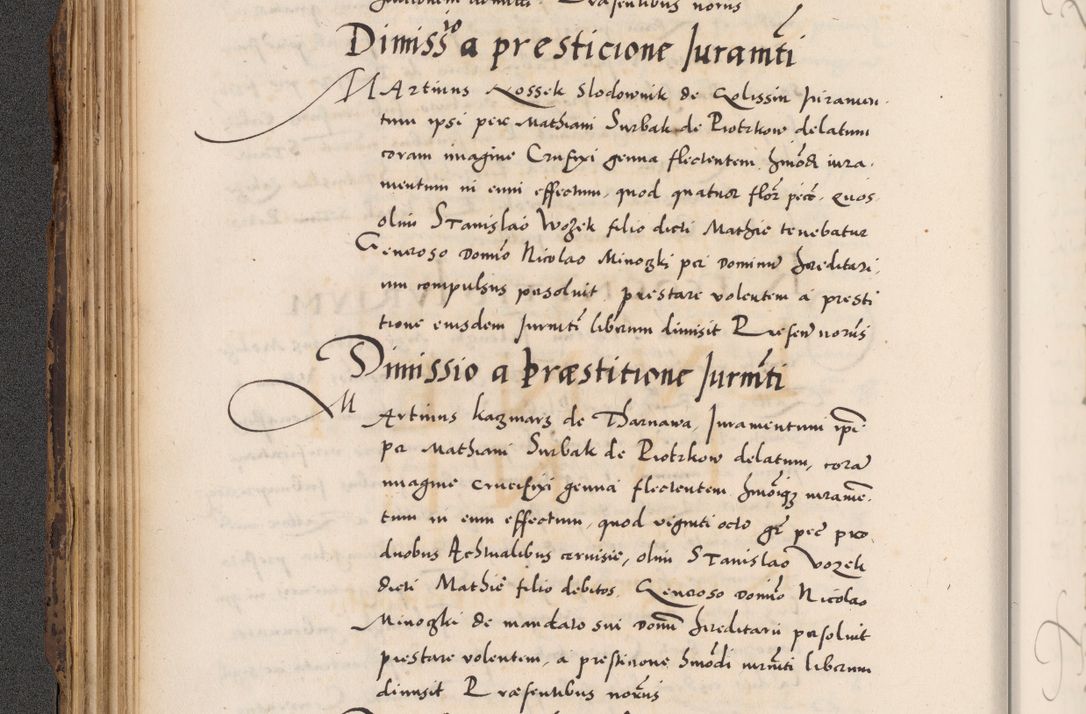 Presentibus notus
Dimissio a presticione Juramti
MArtinus Kossek Slodownik de Golissin Juramen
tum ipsi per Mathiam Surbak de Piotrkow delatum
coram imagine Crucifixi genua flectentem hmodi iura
mentum in eum effectum, quod quatuor flor pec quos
olim Stanislao Wozek filio dicti Mathie tenebatur
Generoso domino Nicolao Minozki per dominum hereditari
um compulsus persoluit prestare volentem a presti
tione eiusdem Jurmti liberum dimisit Presen norus
Dimissio a Præstitione Jurmti
MArtinus kaczmarz de Tharnawa, Juramentum ipi
per Mathiam Surbak de Piotrkow delatum, cora
imagine crucifixi genua flectentem hmoiq iurame
tum in eum effectum, quod viginti octo gr pec pro
duobus Achtualibus ceruisie, olim Stanislao Vozek
dicti Mathie filio debitos, Generoso domino Nicolao
Minozki de mandato sui domi hereditarii persoluit
prestare volentem, a presticione hmodi iurmti liberum
dimisit Præsentibus norus